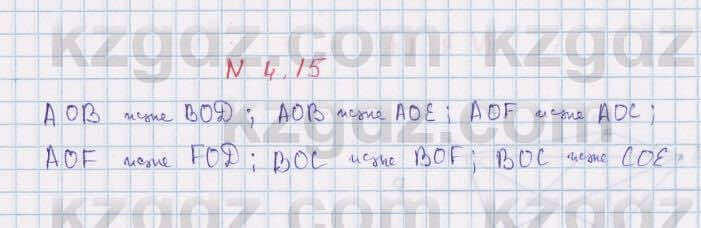 kzgdz.com kzgdz
N 4.15
AOB және BOD; AOB және AOE; AOF және AOC;
AOF және FOD; BOC және BOF; BOC және COE